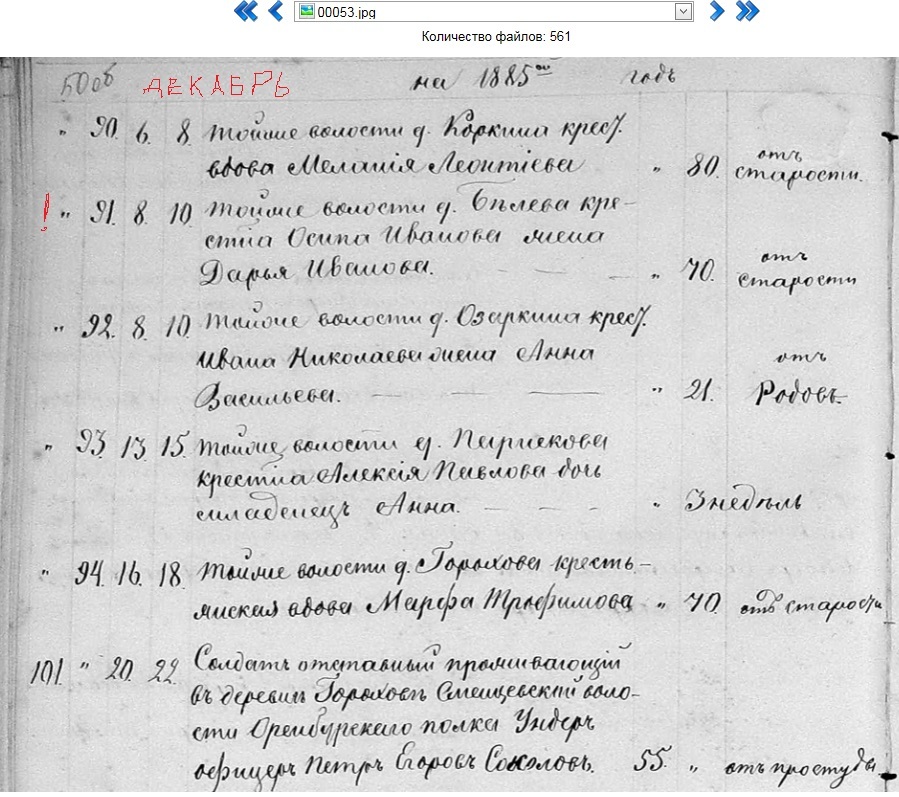 00053.jpg
Количество файлов: 561
50об ДЕКАБРЬ на 1885ый годъ
" 90. 6. 8. Тойже волости д. Коркина крест.
вдова Меланія Леонтіева " 80. отъ старости.
! " 91. 8. 10. Тойже волости д. Бѣлева кре-
стіна Осипа Иванова жена
Дарья Иванова. " 70. отъ старости
" 92. 8. 10. Тойже волости д. Озаркина крест.
Ивана Николаева жена Анна
Васильева. " 21. отъ Родовъ.
" 93. 13. 15. Тойже волости д.
крестіна Алексія Павлова дочь
младенецъ Анна. " 3 недѣль
" 94. 16. 18. Тойже волости д. Горохова кресть-
янская вдова Марфа Трофимова " 70. отъ старости
101. " 20. 22. Солдатъ отставный проживающій
въ деревни Гороховъ волο-
сти Оренбурскаго полка Ундеръ
офицеръ Петръ Егоровъ Соколовъ. 55. " отъ простуды.